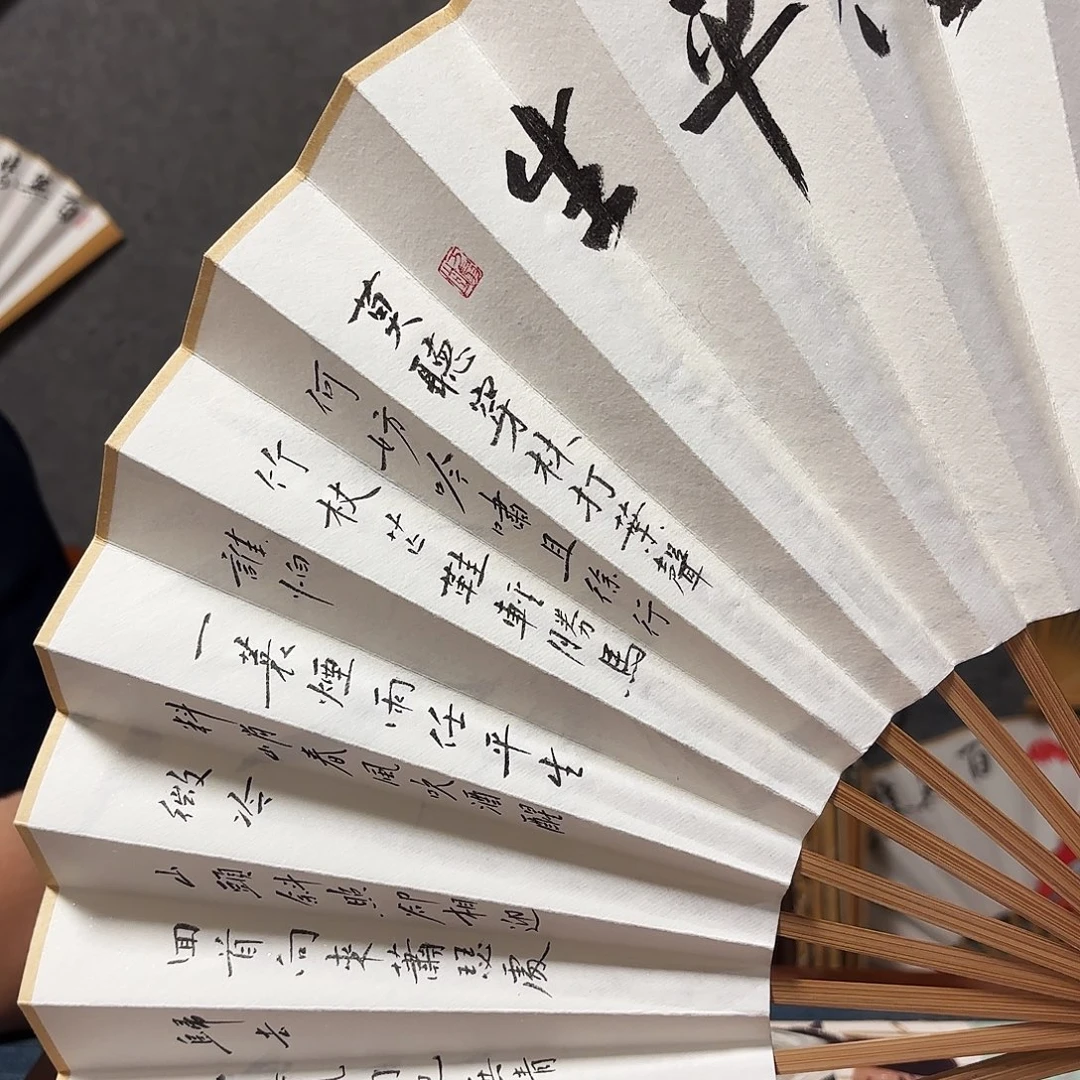 平生
莫聽穿林打葉聲
何妨吟嘯且徐行
竹杖芒鞋輕勝馬
誰怕
一蓑煙雨任平生
料峭春風吹酒醒
微冷
山頭斜照卻相迎
回首向來蕭瑟處
歸去